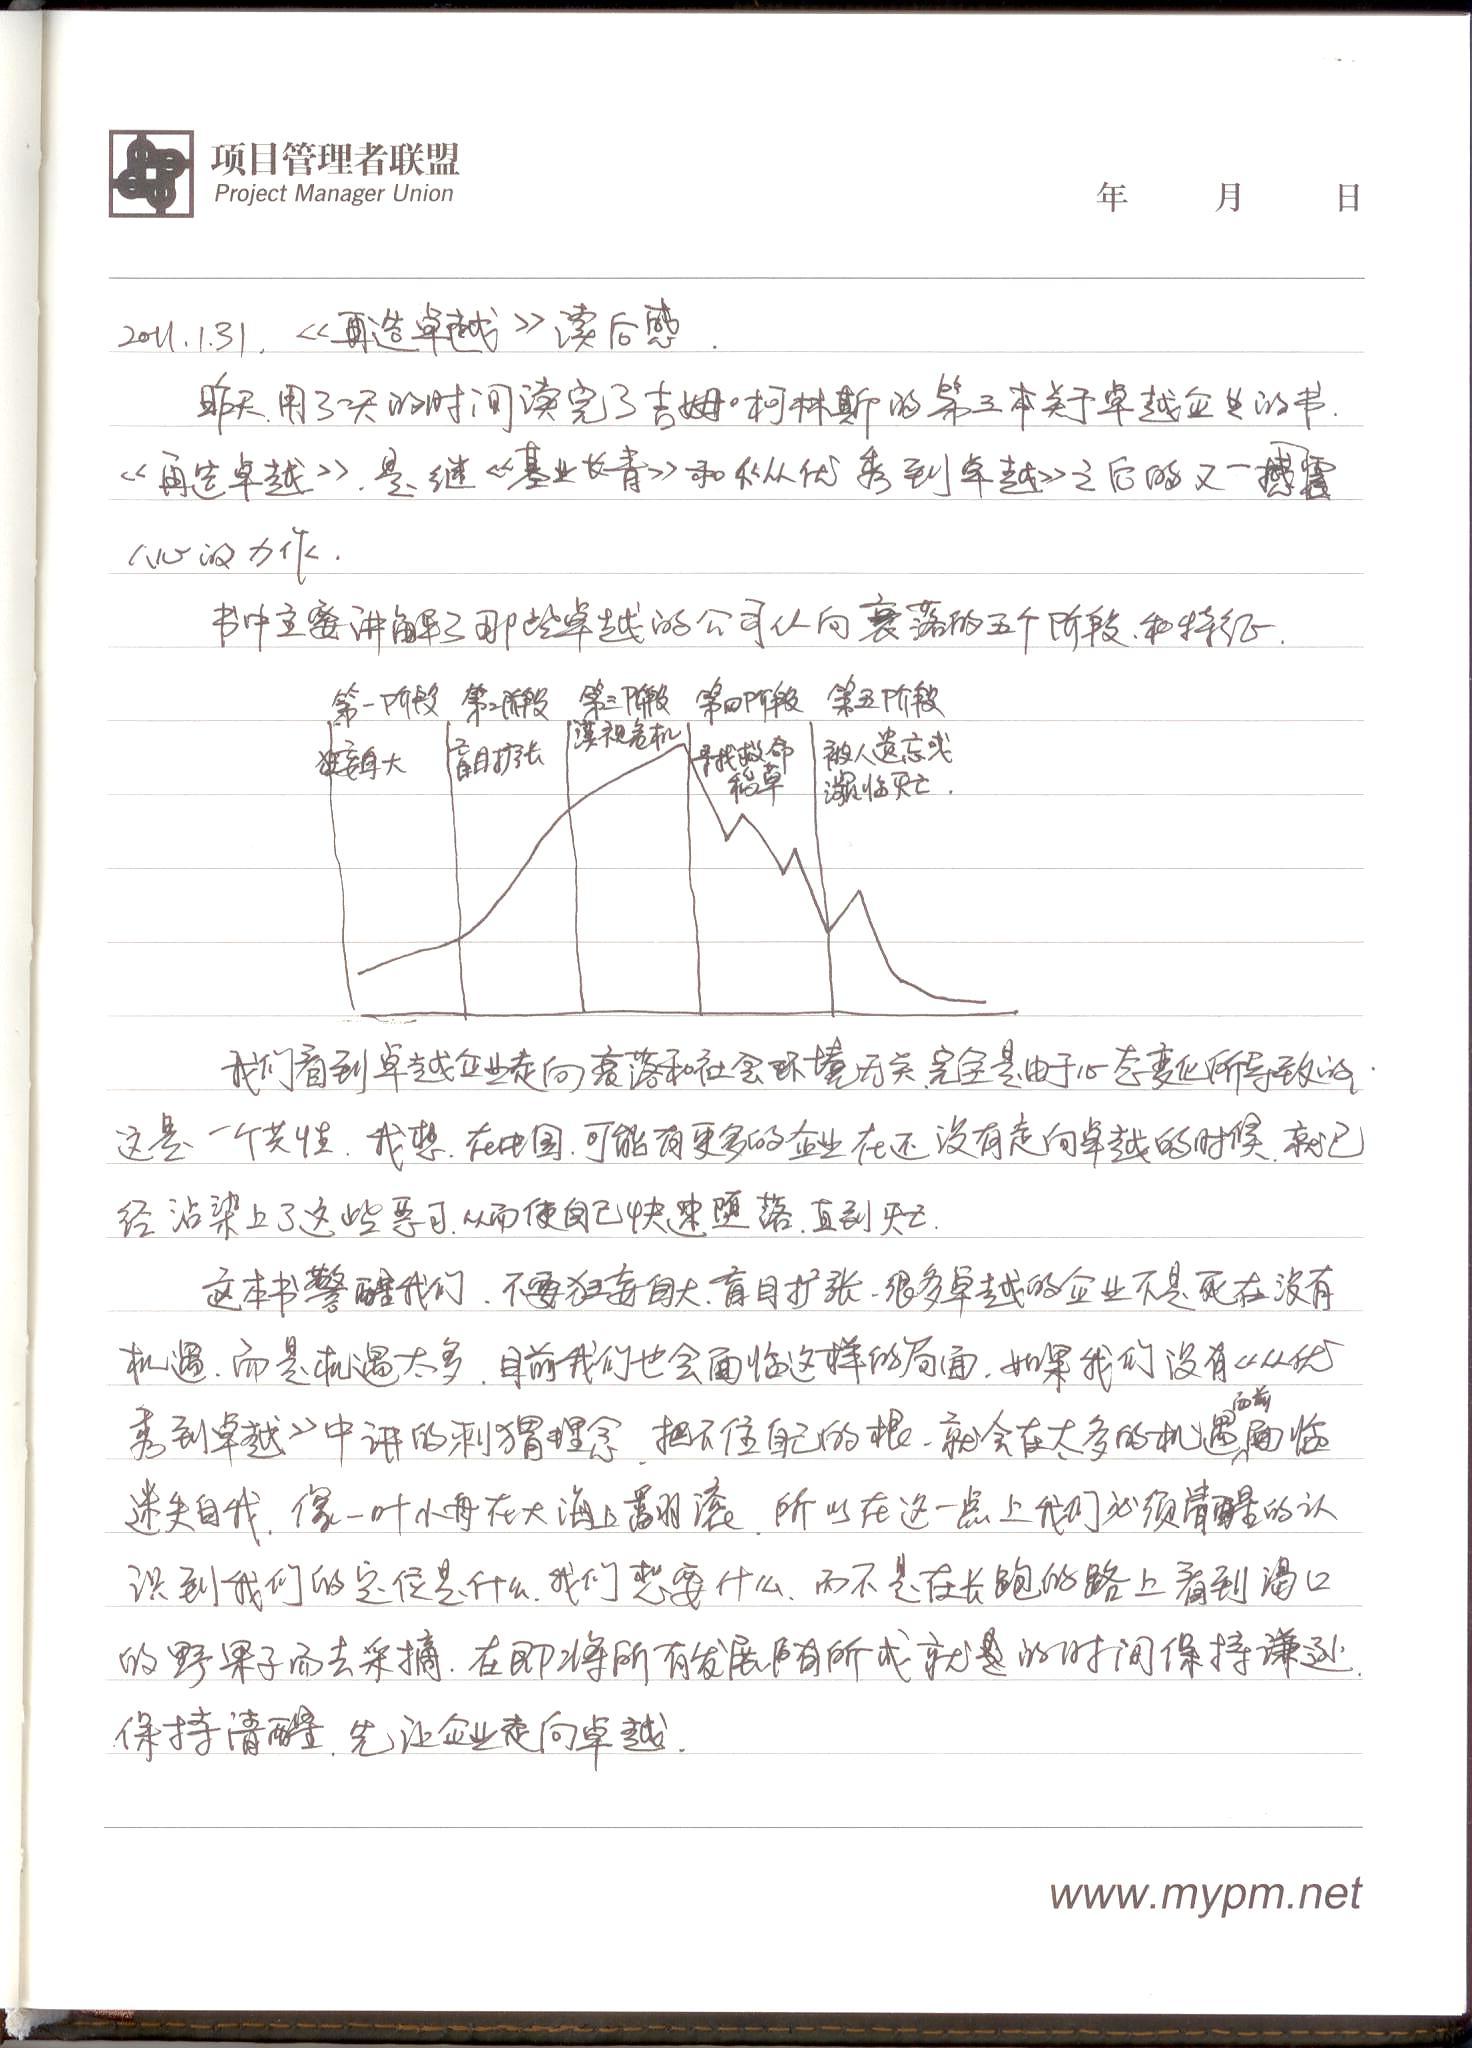 项目管理者联盟
Project Manager Union
年 月 日
2011.1.31. 《再造卓越》读后感.
昨天用了一天的时间读完了吉姆·柯林斯的第三本关于卓越企业的书.
《再造卓越》.是继《基业长青》和《从优秀到卓越》之后的又一撼震
人心的力作.
书中主要讲解了那些卓越的公司从向衰落的五个阶段、和特征.
第一阶段 第二阶段 第三阶段 第四阶段 第五阶段
狂妄自大 盲目扩张 漠视危机 寻找救命 被人遗忘或
稻草 濒临灭亡.
我们看到卓越企业走向衰落和社会环境无关.完全是由于心态变化所导致的.
这是一个共性.我想.在中国.可能有更多的企业在还没有走向卓越的时候.就已
经沾染上了这些恶习.从而使自己快速堕落.直到灭亡.
这本书警醒我们.不要狂妄自大.盲目扩张.很多卓越的企业不是死在没有
机遇.而是机遇太多.目前我们也会面临这样的局面.如果我们没有《从优
秀到卓越》中讲的刺猬理念.把不住自己的根.就会在太多的机遇面前面临
迷失自我.像一叶小舟在大海上翻滚.所以在这一点上我们必须清醒的认
识到我们的定位是什么.我们想要什么.而不是在长跑的路上看到渴口
的野果子而去采摘.在即将所有发展随有所成就是的时间保持谦逊.
保持清醒.先让企业走向卓越.
www.mypm.net